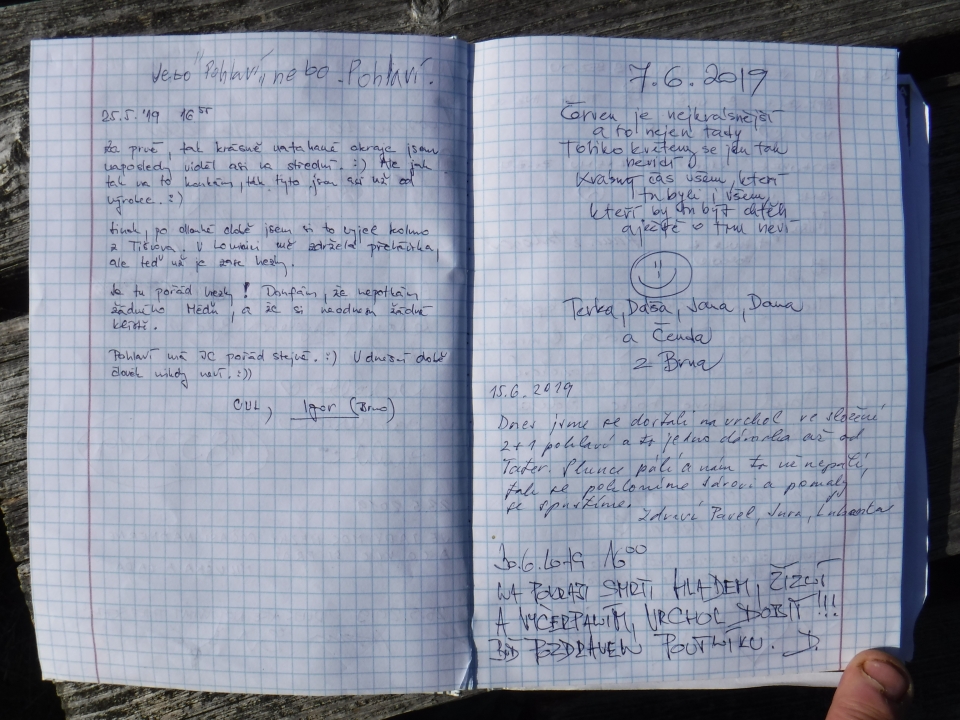 nebo "Pohlaví" nebo .Pohlaví.
25.5.'19 16⁵⁵
Za prvé, tak krásně natahané okraje jsem
naposledy viděl asi na střední. :) Ale jak
tak na to koukám, tak tyto jsou asi už od
výrobce. :)
Jinak, po dlouhé době jsem si to vyjel kolmo
z Tišnova. V Lomnici mě zdržela přeháňka,
ale teď už je zase hezky.
Je tu pořád hezky! Doufám, že nepotkám
žádného Médu, a že si neodnesu žádné
klíště.
Pohlaví má JC pořád stejné. :) V dnešní době
člověk nikdy neví. :))
CUL, Igor (Brno)
7.6.2019
Červen je nejkrásnější
a to nejen tady
Tohoto kvítem se jen tak
nevidí
Krásný čas všem, kteří
tu byli i všem,
kteří by tu být chtěli
a ještě o tom neví
Terka, Dáša, Jana, Dana
a Čenda
z Brna
15.6.2019
Dnes jsme se dostali na vrchol ve složení
2+1 pohlaví a to jedno děvucha až od
Tater. Slunce pálí a nám to už nepálí,
tak se pokloníme zdroví a pomaly
se spustíme.
Zdraví Pavel, Jura, Lubomíra
30.6.2019 16⁰⁰
NA POKRAJI SMRTI HLADEM, ŽÍZNÍ
A VYČERPÁNÍM, VRCHOL DOBIT!!!
BUĎ POZDRAVEN POUTNÍKU. D.